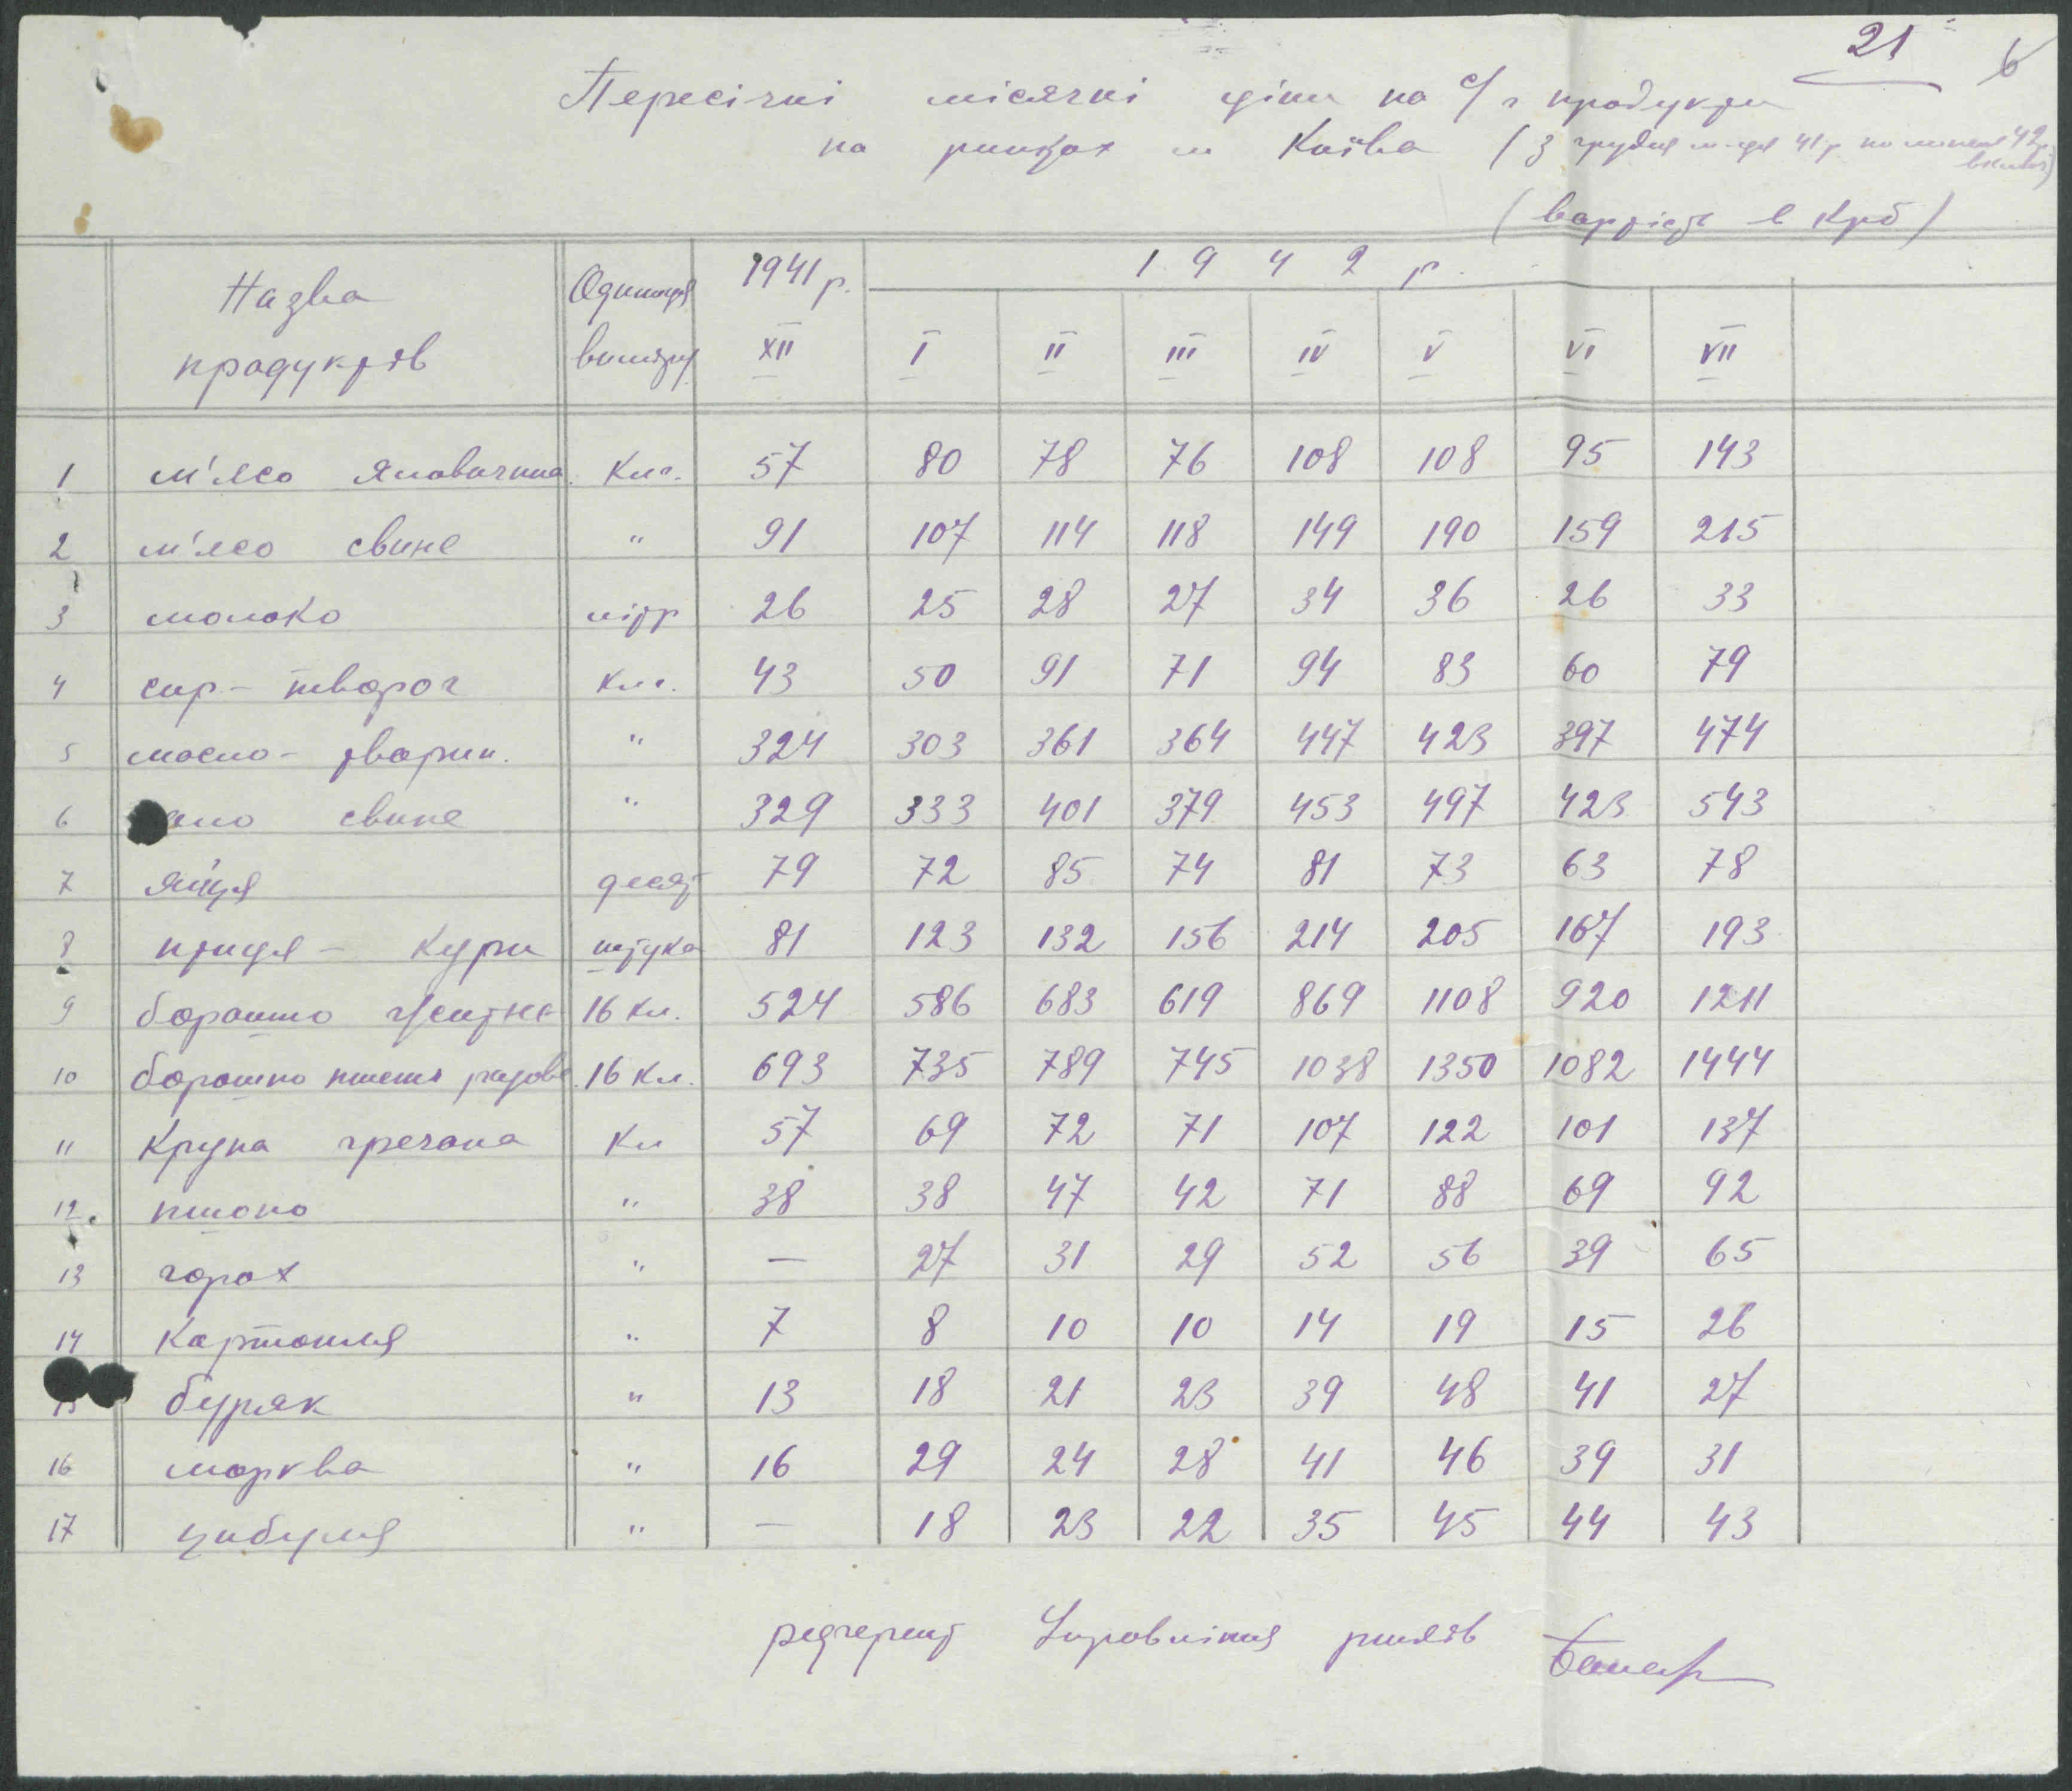 21
6
Пересічні місячні ціни на с/г продукти
на ринках м Київа (з грудня м-ця 41 р. по липень 42 р.
включ)
(вартість в крб)
Назва продуктів Одиниця виміру 1941 р. 1942 р.
XII I II III IV V VI VII
1 м'ясо яловичина Клг. 57 80 78 76 108 108 95 143
2 м'ясо свине " 91 107 114 118 149 190 159 215
3 молоко літр 26 25 28 27 34 36 26 33
4 сир - творог клг. 43 50 91 71 94 83 60 79
5 масло - тварин. " 324 303 361 364 447 423 397 474
6 сало свине " 329 333 401 379 453 497 423 543
7 яйця десят 79 72 85 74 81 73 63 78
8 птиця - кури штука 81 123 132 156 214 205 167 193
9 борошно житнє 16 кл. 524 586 683 619 869 1108 920 1211
10 борошно пшенн разове 16 кл. 693 735 789 745 1038 1350 1082 1444
11 Крупа гречана Кл 57 69 72 71 107 122 101 137
12. пшоно " 38 38 47 42 71 88 69 92
13 горох " — 27 31 29 52 56 39 65
14 картопля " 7 8 10 10 14 19 15 26
15 буряк " 13 18 21 23 39 48 41 27
16 морква " 16 29 24 28 41 46 39 31
17 цибуля " — 18 23 22 35 45 44 43
референт Управління ринків